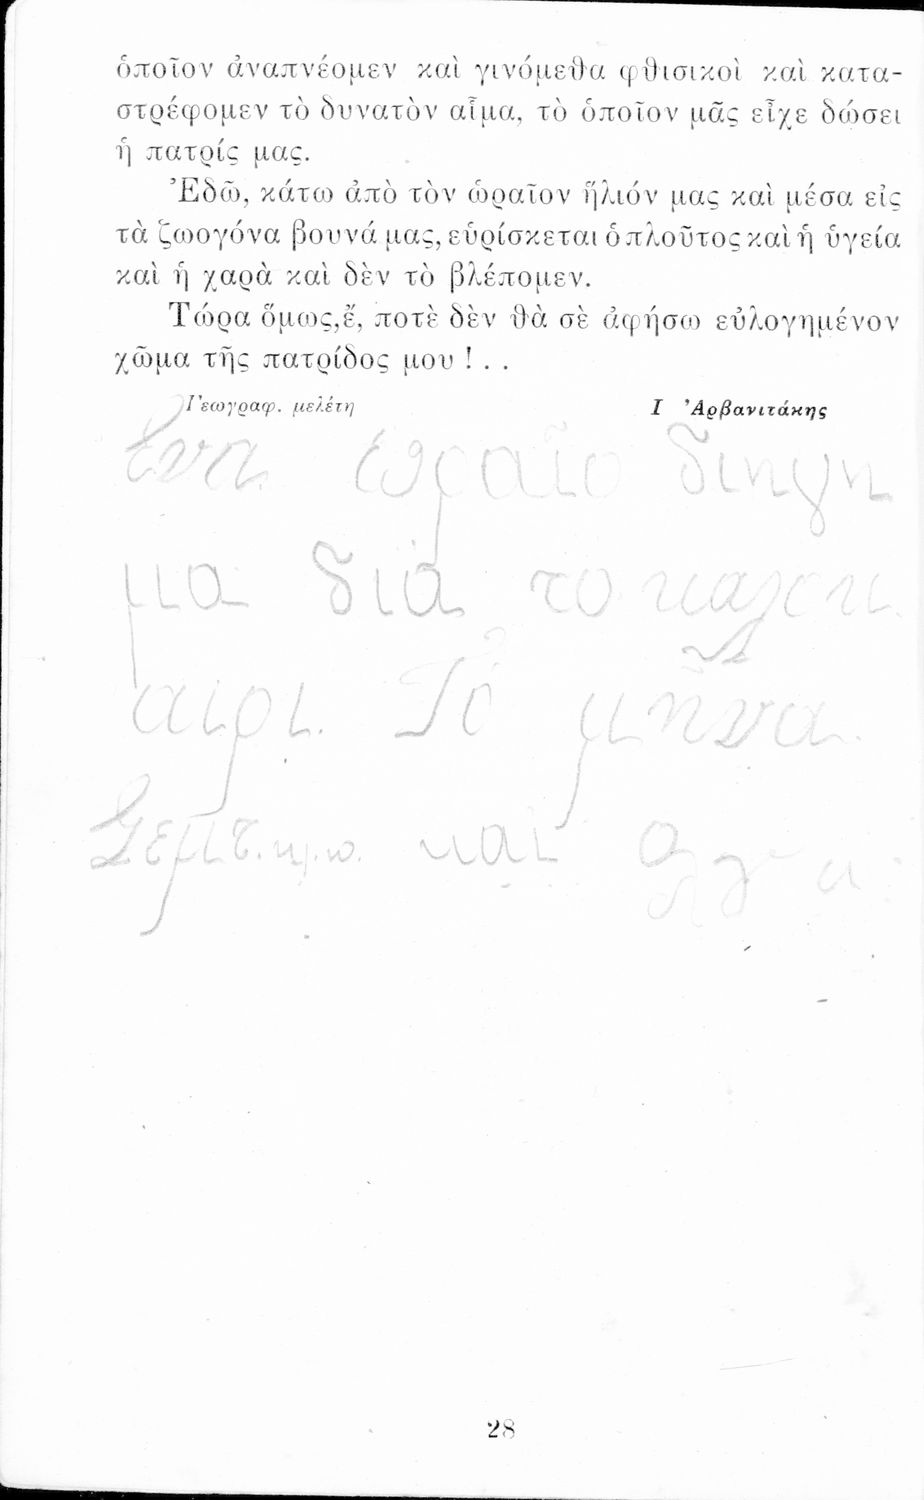 ὁποῖον ἀναπνέομεν καὶ γινόμεθα φθισικοὶ καὶ κατα-
στρέφομεν τὸ δυνατὸν αἷμα, τὸ ὁποῖον μᾶς εἶχε δώσει
ἡ πατρίς μας.
Ἐδῶ, κάτω ἀπὸ τὸν ὡραῖον ἥλιόν μας καὶ μέσα εἰς
τὰ ζωογόνα βουνά μας, εὑρίσκεται ὁ πλοῦτος καὶ ἡ ὑγεία
καὶ ἡ χαρὰ καὶ δὲν τὸ βλέπομεν.
Τώρα ὅμως,ἔ, ποτὲ δὲν θὰ σὲ ἀφήσω εὐλογημένον
χῶμα τῆς πατρίδος μου ! . .
Γεωγραφ. μελέτη Ι Ἀρβανιτάκης
Ενα ωραῖο διηγη
μα διὰ το καλοκ
αιρι. Τὸ μῆνα
και
28